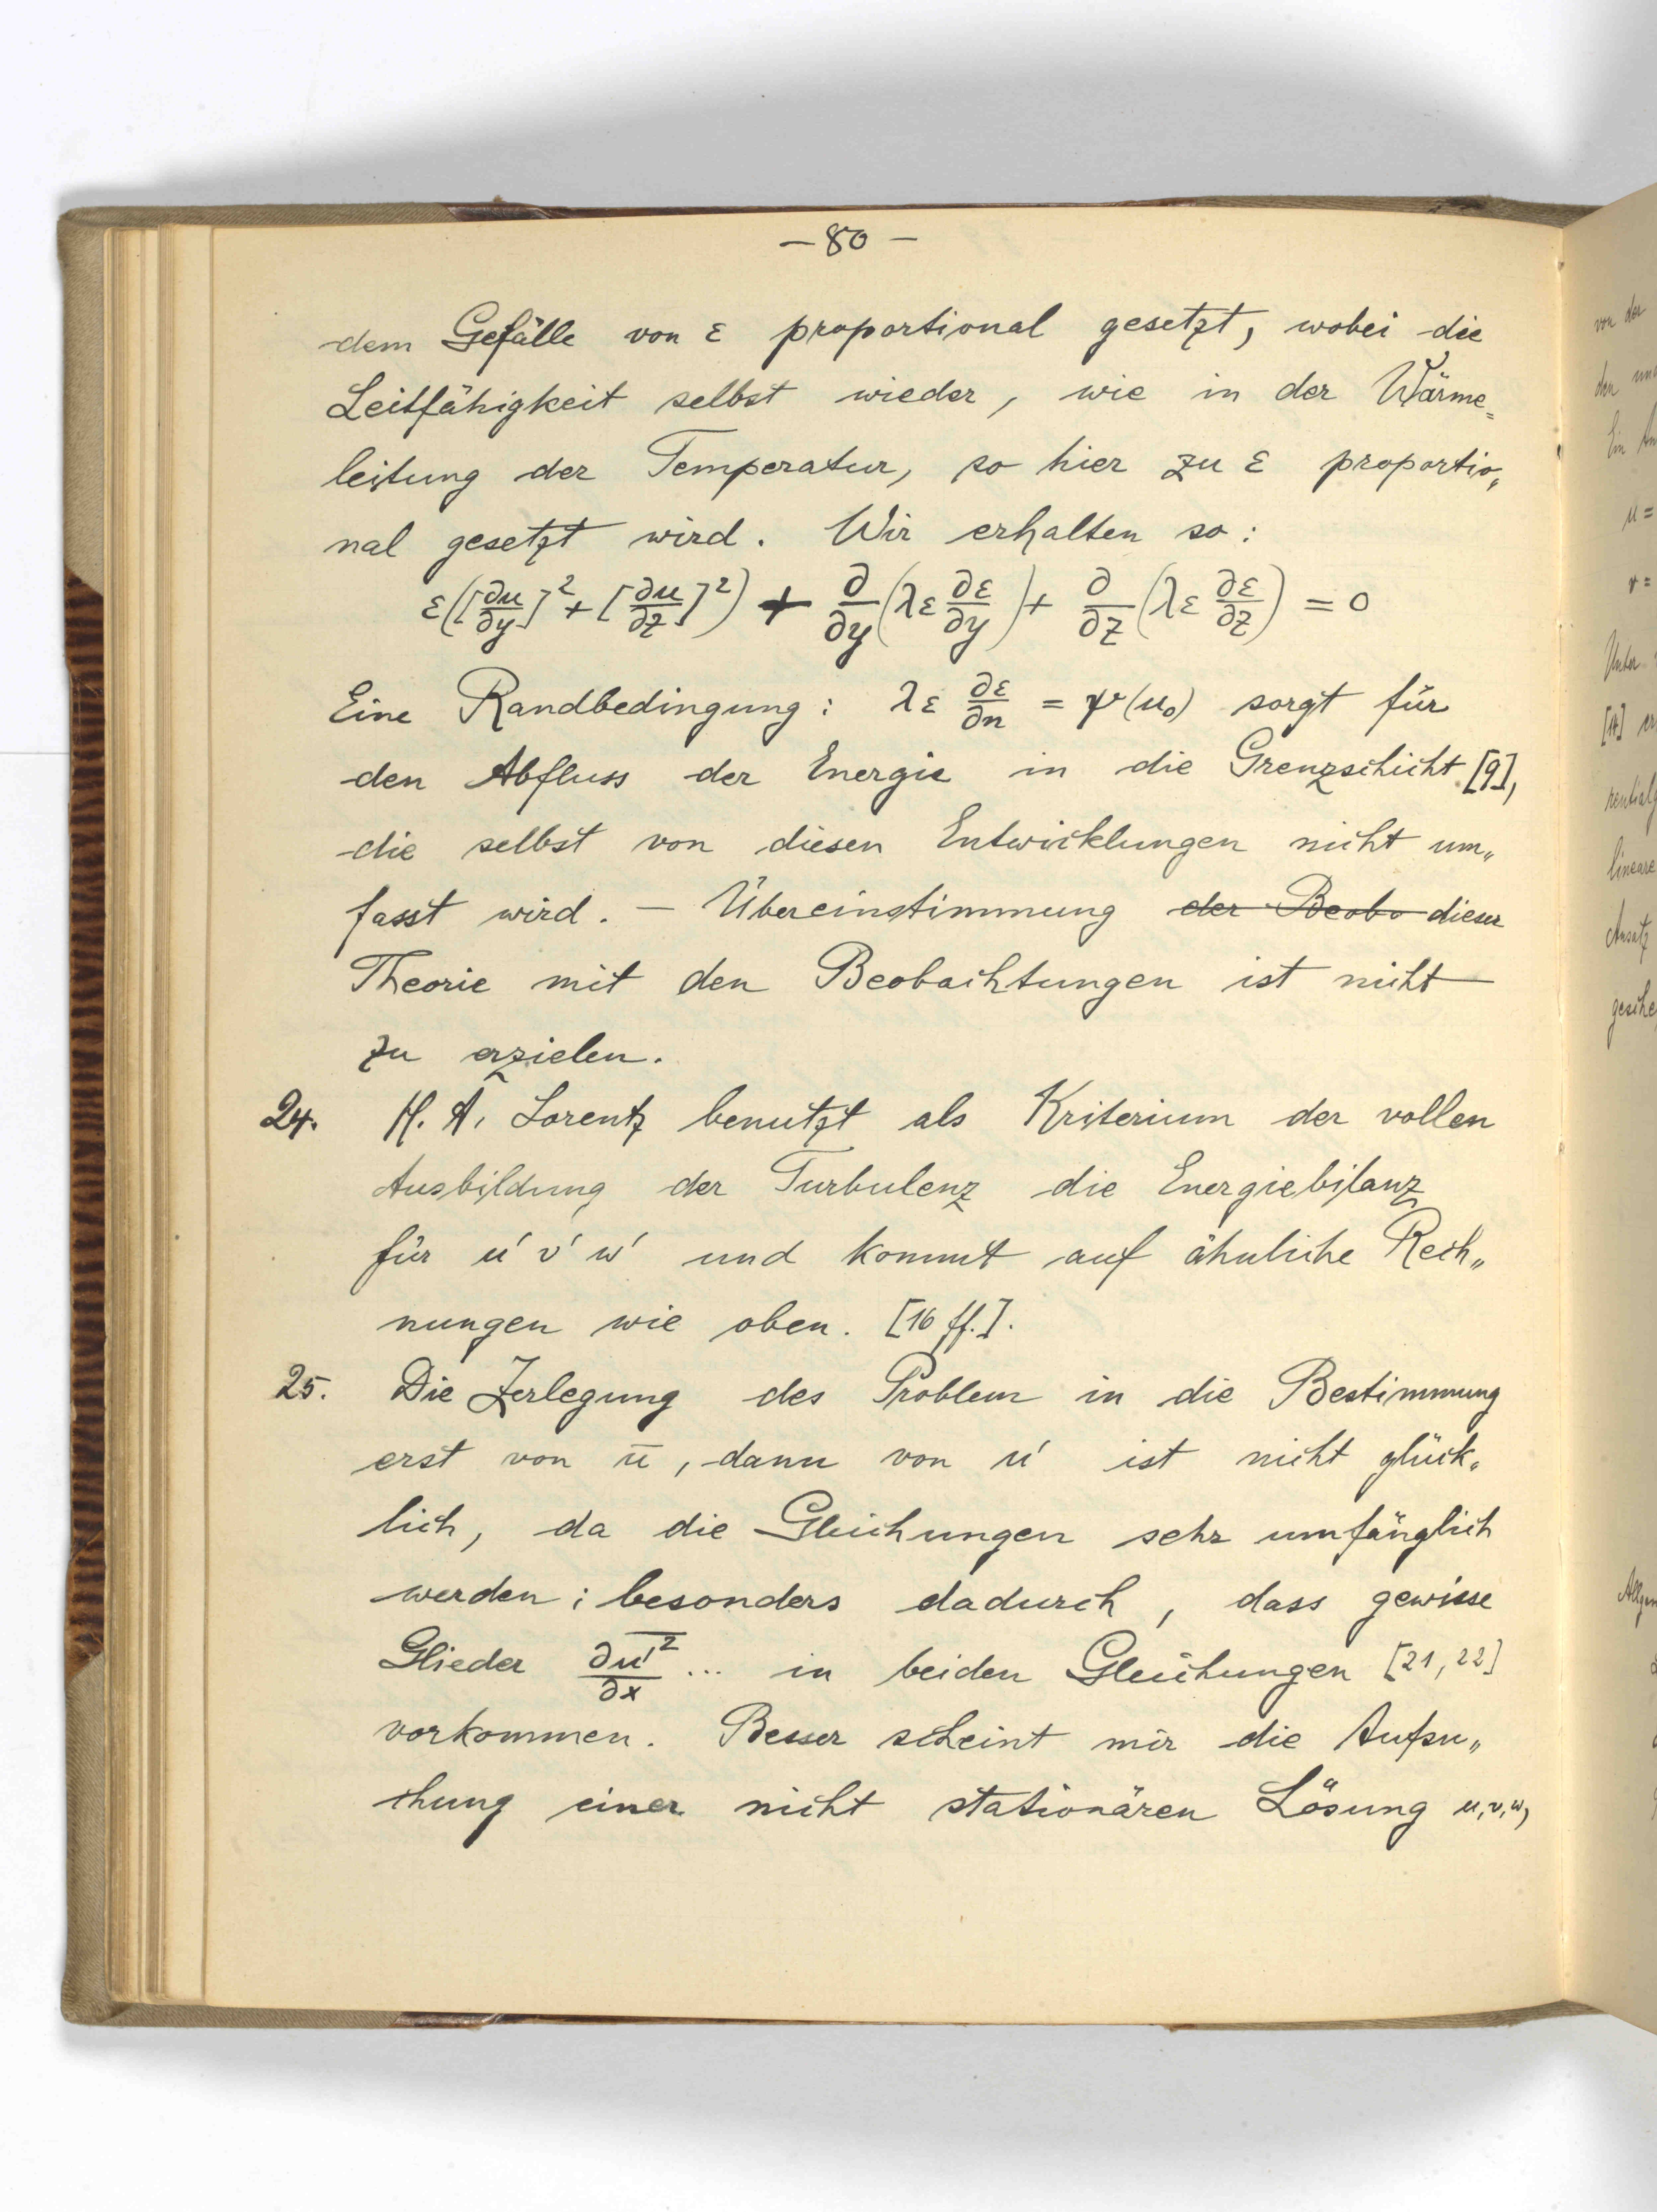 – 80 –
dem Gefälle von ε proportional gesetzt, wobei die
Leitfähigkeit selbst wieder, wie in der Wärme=
leitung der Temperatur, so hier zu ε proportio„
nal gesetzt wird. Wir erhalten so:
ε([∂u/∂y]² + [∂u/∂z]²) + ∂/∂y (λε ∂ε/∂y) + ∂/∂z (λε ∂ε/∂z) = 0
Eine Randbedingung: λε ∂ε/∂n = ψ(u₀) sorgt für
den Abfluss der Energie in die Grenzschicht [9],
die selbst von diesen Entwicklungen nicht um„
fasst wird. – Übereinstimmung der Beobo dieser
Theorie mit den Beobachtungen ist nicht
zu erzielen.
24. H. A. Lorentz benutzt als Kriterium der vollen
Ausbildung der Turbulenz die Energiebilanz
für u' v' w' und kommt auf ähnliche Rech„
nungen wie oben. [16 ff.].
25. Die Zerlegung des Problem in die Bestimmung
erst von u̅, dann von u' ist nicht glück„
lich, da die Gleichungen sehr umfänglich
werden; besonders dadurch, dass gewisse
Glieder ∂u̅'̅²̅/∂x ... in beiden Gleichungen [21, 22]
vorkommen. Besser scheint mir die Aufsu„
chung einer nicht stationären Lösung u, v, w,
von der
Ein
u =
v =
Unter
[14]
lineare
Ansatz